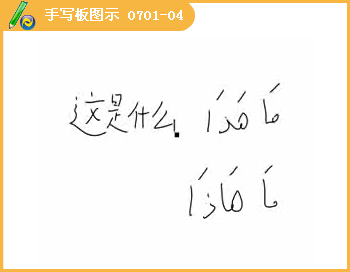 手写板图示 0701-04
这是什么. مَا هَذَا
مَا هَاذَا